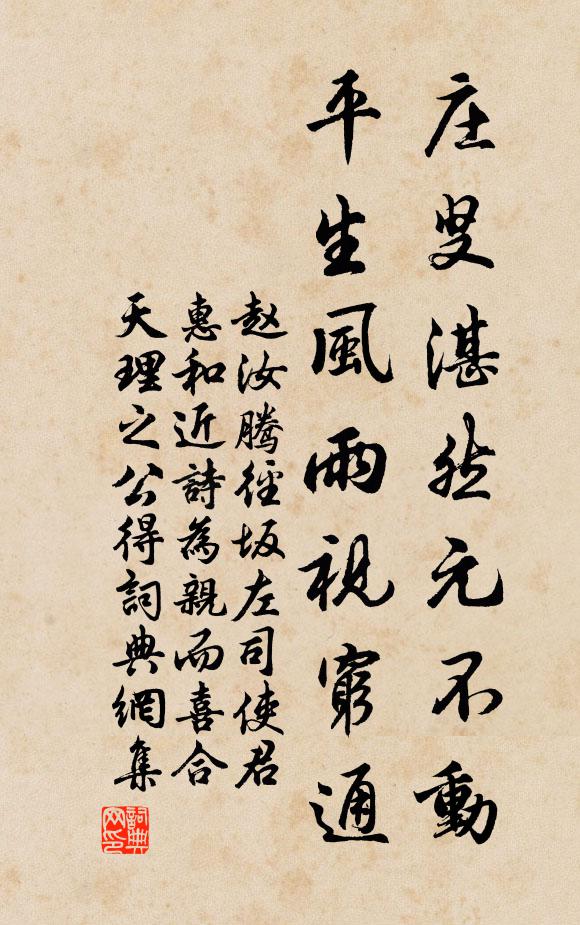 庄叟湛然元不動
平生風雨視窮通
赵汝騰徑坂左司使君
惠和近詩為親而喜合
天理之公得詞典網集
詞典
网印